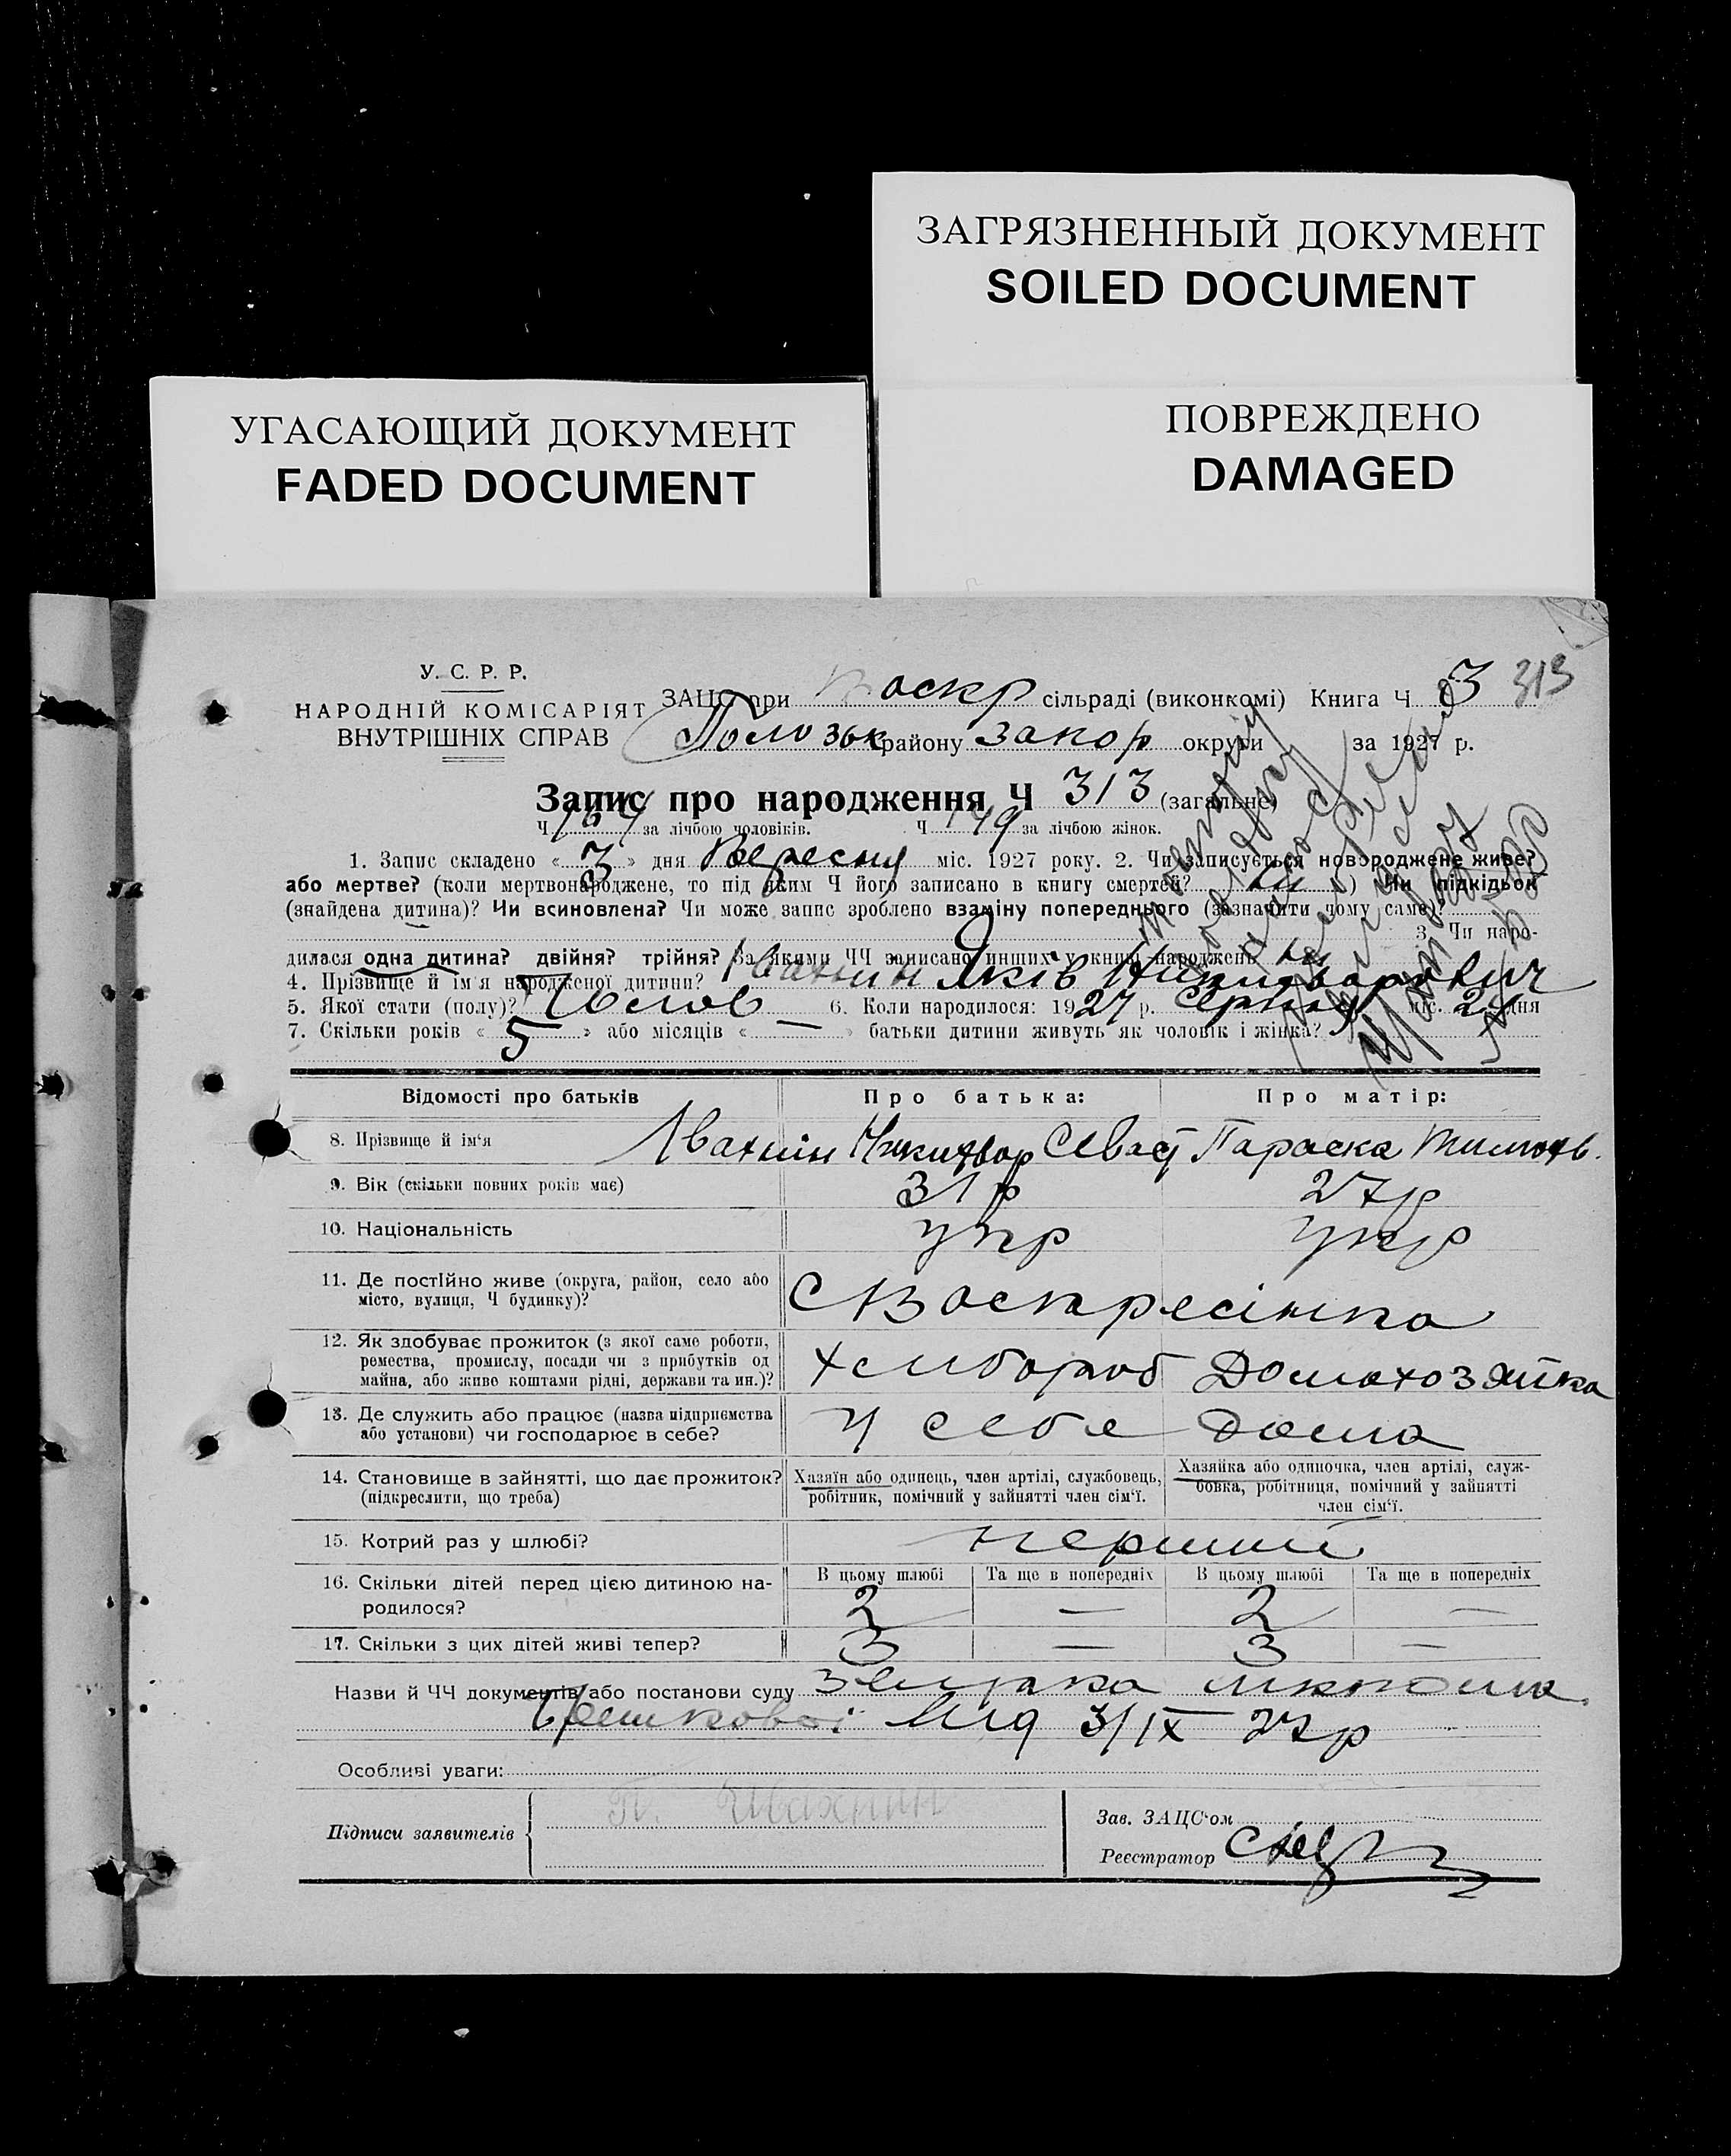 ЗАГРЯЗНЕННЫЙ ДОКУМЕНТ
SOILED DOCUMENT
УГАСАЮЩИЙ ДОКУМЕНТ
FADED DOCUMENT
ПОВРЕЖДЕНО
DAMAGED
У. С. Р. Р.
НАРОДНІЙ КОМІСАРІЯТ
ВНУТРІШНІХ СПРАВ
ЗАЦС при Воскр сільраді (виконкомі) Книга Ч 3 313
Полозьк району Запор округи за 1927 р.
Запис про народження Ч 313 (загальне)
Ч 164 за лічбою чоловіків. Ч 149 за лічбою жінок.
1. Запис складено « 3 » дня Вересня міс. 1927 року. 2. Чи записується новороджене живе?
або мертве? (коли мертвонароджене, то під яким Ч його записано в книгу смертей? ) Чи підкідьок
(знайдена дитина)? Чи всиновлена? Чи може запис зроблено взаміну попереднього (зазначити чому саме)?
3. Чи наро-
дилася одна дитина? двійня? трійня? За якими ЧЧ записано инших у книзі народжень
4. Прізвище й ім'я народженої дитини? Івахнин Яків Никифорович
5. Якої стати (полу)? Чолов 6. Коли народилося: 1927 р. Серпня міс. 21 дня
7. Скільки років « 5 » або місяців « — » батьки дитини живуть як чоловік і жінка?
Відомості про батьків Про батька: Про матір:
8. Прізвище й ім'я Івахнін Никифор Севаст Параска Тимофв.
9. Вік (скільки повних років має) 31 р 27 р
10. Національність укр укр
11. Де постійно живе (округа, район, село або
місто, вулиця, Ч будинку)? С Воскресінка
12. Як здобуває прожиток (з якої саме роботи,
ремества, промислу, посади чи з прибутків од
майна, або живе коштами рідні, держави та ин.)? Хлибороб Домохозяйка
13. Де служить або працює (назва підприємства
або установи) чи господарює в себе? У себе дома
14. Становище в зайнятті, що дає прожиток?
(підкреслити, що треба)
Хазяїн або одинець, член артілі, службовець,
робітник, помічний у зайнятті член сім'ї.
Хазяйка або одиночка, член артілі, служ-
бовка, робітниця, помічний у зайнятті
член сім'ї.
15. Котрий раз у шлюбі? перший
16. Скільки дітей перед цією дитиною на-
родилося?
В цьому шлюбі Та ще в попередніх В цьому шлюбі Та ще в попередніх
2 — 2 —
17. Скільки з цих дітей живі тепер? 3 — 3 —
Назви й ЧЧ документів або постанови суду
від 3/IX 27 р
Особливі уваги:
Підписи заявителів П. Ивахнин
Зав. ЗАЦС'ом
Реєстратор